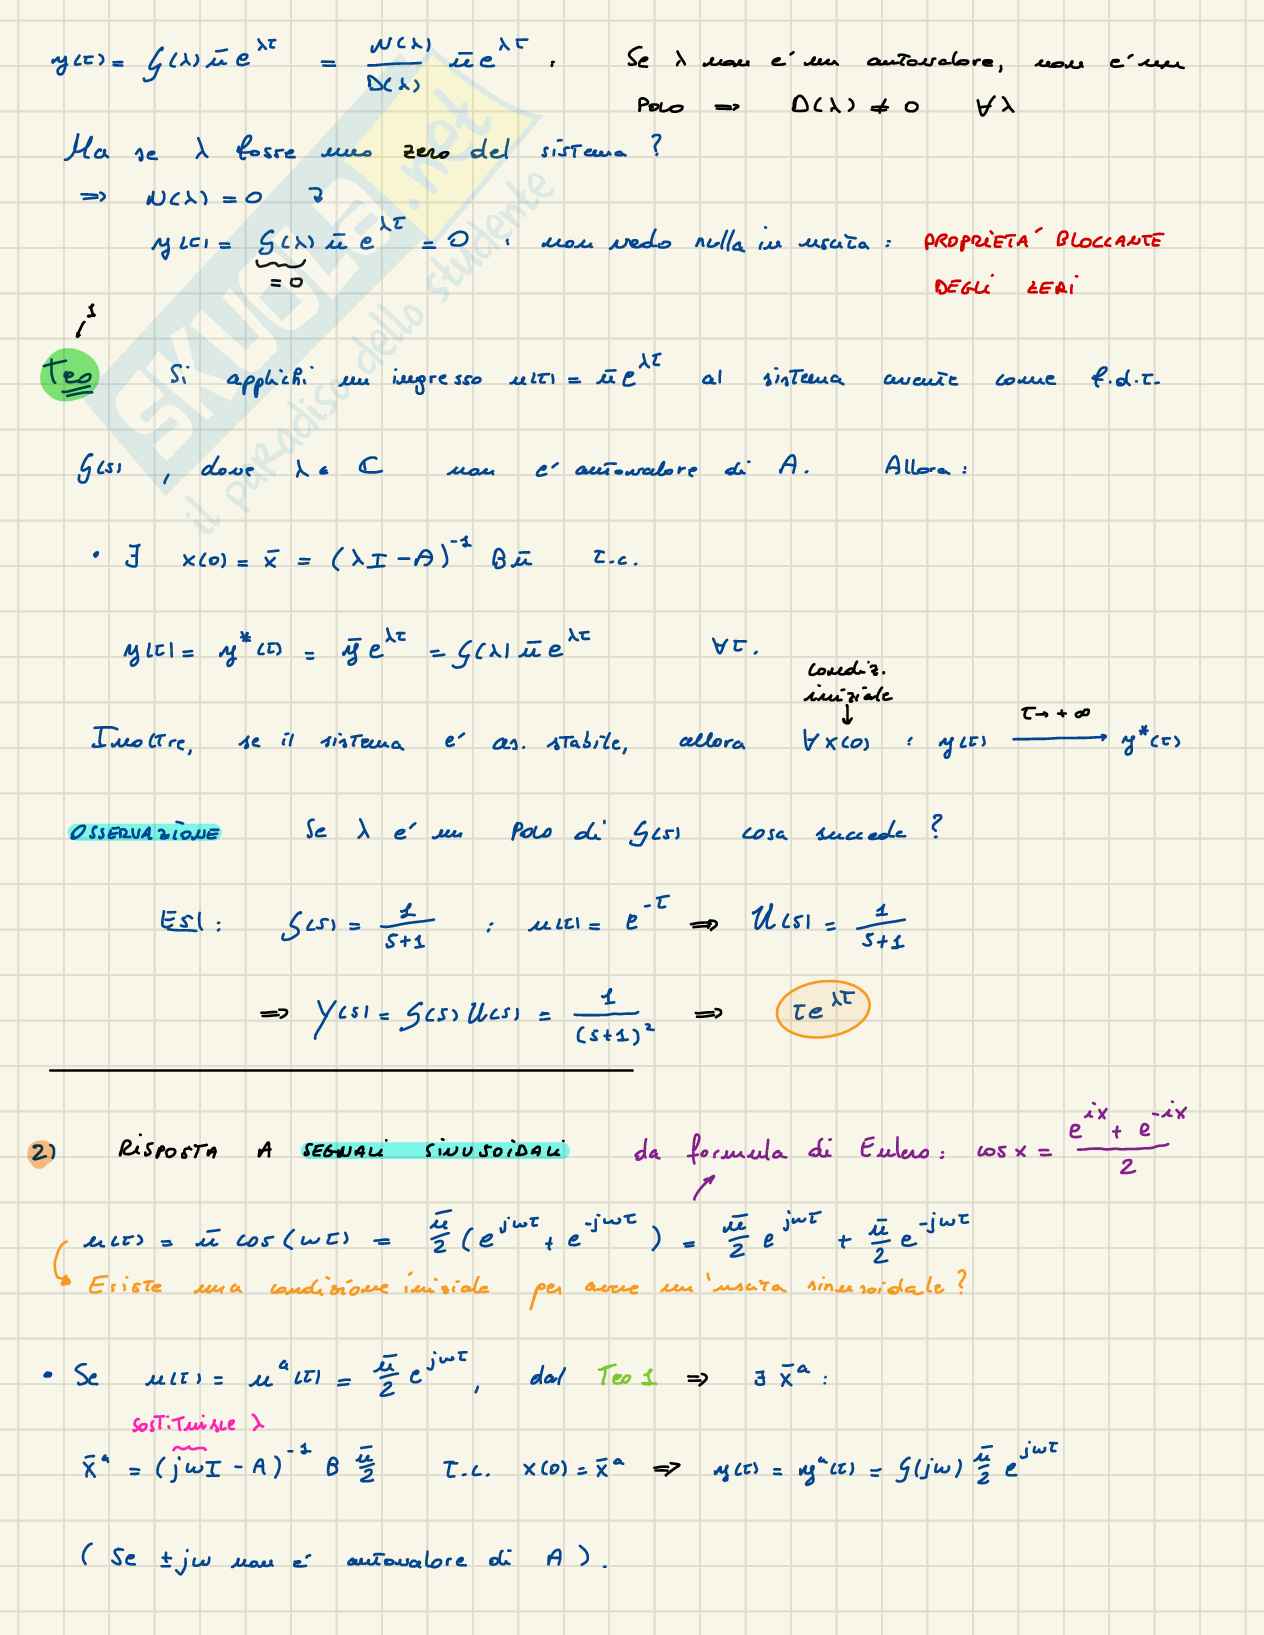 y(t) = G(λ) ū e^{λt} = N(λ)/D(λ) ū e^{λt} . Se λ non é un autovalore, non é un
Polo ⇒ D(λ) ≠ 0 ∀λ
Ma se λ fosse uno zero del sistema ?
⇒ N(λ) = 0
y(t) = G(λ) ū e^{λt} = 0 : non vedo nulla in uscita : PROPRIETÁ BLOCCANTE
= 0 DEGLI ZERI
1
Teo Si applichi un ingresso u(t) = ū e^{λt} al sistema avente come f.d.t.
G(s) , dove λ ∈ C non é autovalore di A. Allora :
• ∃ x(0) = x̄ = (λI - A)^{-1} B ū t.c.
y(t) = y*(t) = ȳ e^{λt} = G(λ) ū e^{λt} ∀t.
condiz.
iniziale
Inoltre, se il sistema é as. stabile, allora ∀ x(0) : y(t) ⟶ y*(t)
t→ +∞
OSSERVAZIONE Se λ é un polo di G(s) cosa succede ?
ES1 : G(s) = 1/(s+1) : u(t) = e^{-t} ⇒ U(s) = 1/(s+1)
⇒ Y(s) = G(s) U(s) = 1/(s+1)² ⇒ t e^{λt}
2) RISPOSTA A SEGNALI SINUSOIDALI da formula di Eulero : cos x = (e^{ix} + e^{-ix})/2
u(t) = ū cos(ωt) = ū/2 (e^{jωt} + e^{-jωt}) = ū/2 e^{jωt} + ū/2 e^{-jωt}
Esiste una condizione iniziale per avere un'uscita sinusoidale ?
• Se u(t) = u^a(t) = ū/2 e^{jωt}, dal Teo 1 ⇒ ∃ x̄^a :
sostituisce λ
x̄^a = (jωI - A)^{-1} B ū/2 t.c. x(0) = x̄^a ⇒ y(t) = y^a(t) = G(jω) ū/2 e^{jωt}
( Se ±jω non é autovalore di A ).
SKUOLA.net
il paradiso dello studente